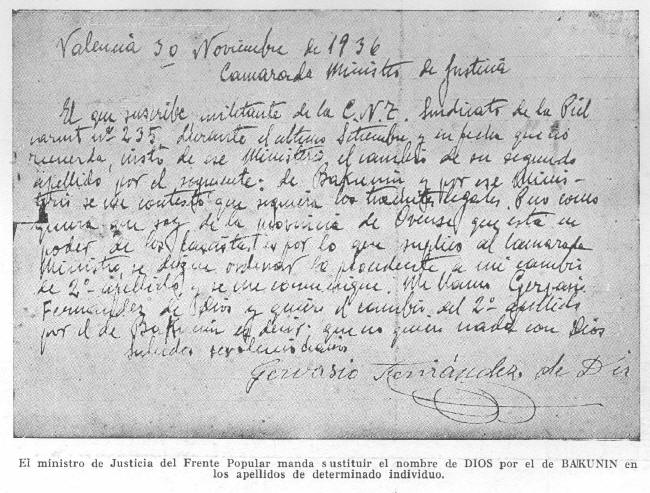 Valencia 30 Noviembre de 1936
Camarada Ministro de Justicia
El que suscribe militante de la C.N.T. Sindicato de la Piel
carnet nº 235, durante el ultimo Setiembre y en fecha que no
recuerda, instó de ese Ministerio el cambio de su segundo
apellido por el siguiente: de Bakunin y por ese Minis-
terio se me contestó que siguiera los tramites legales. Pero como
quiera que soy de la provincia de Orense que está en
poder de los fascistas es por lo que suplico al Camarada
Ministro se digne ordenar lo procedente a mi cambio
de 2º apellido y se me comunique. Me llamo Gervasio
Fernandez de Dios y quiero el cambio del 2º apellido
por el de Bakunin es decir: que no quiero nada con Dios
Saludos revolucionarios
Gervasio Fernández de Dios
El ministro de Justicia del Frente Popular manda sustituir el nombre de DIOS por el de BAKUNIN en
los apellidos de determinado individuo.